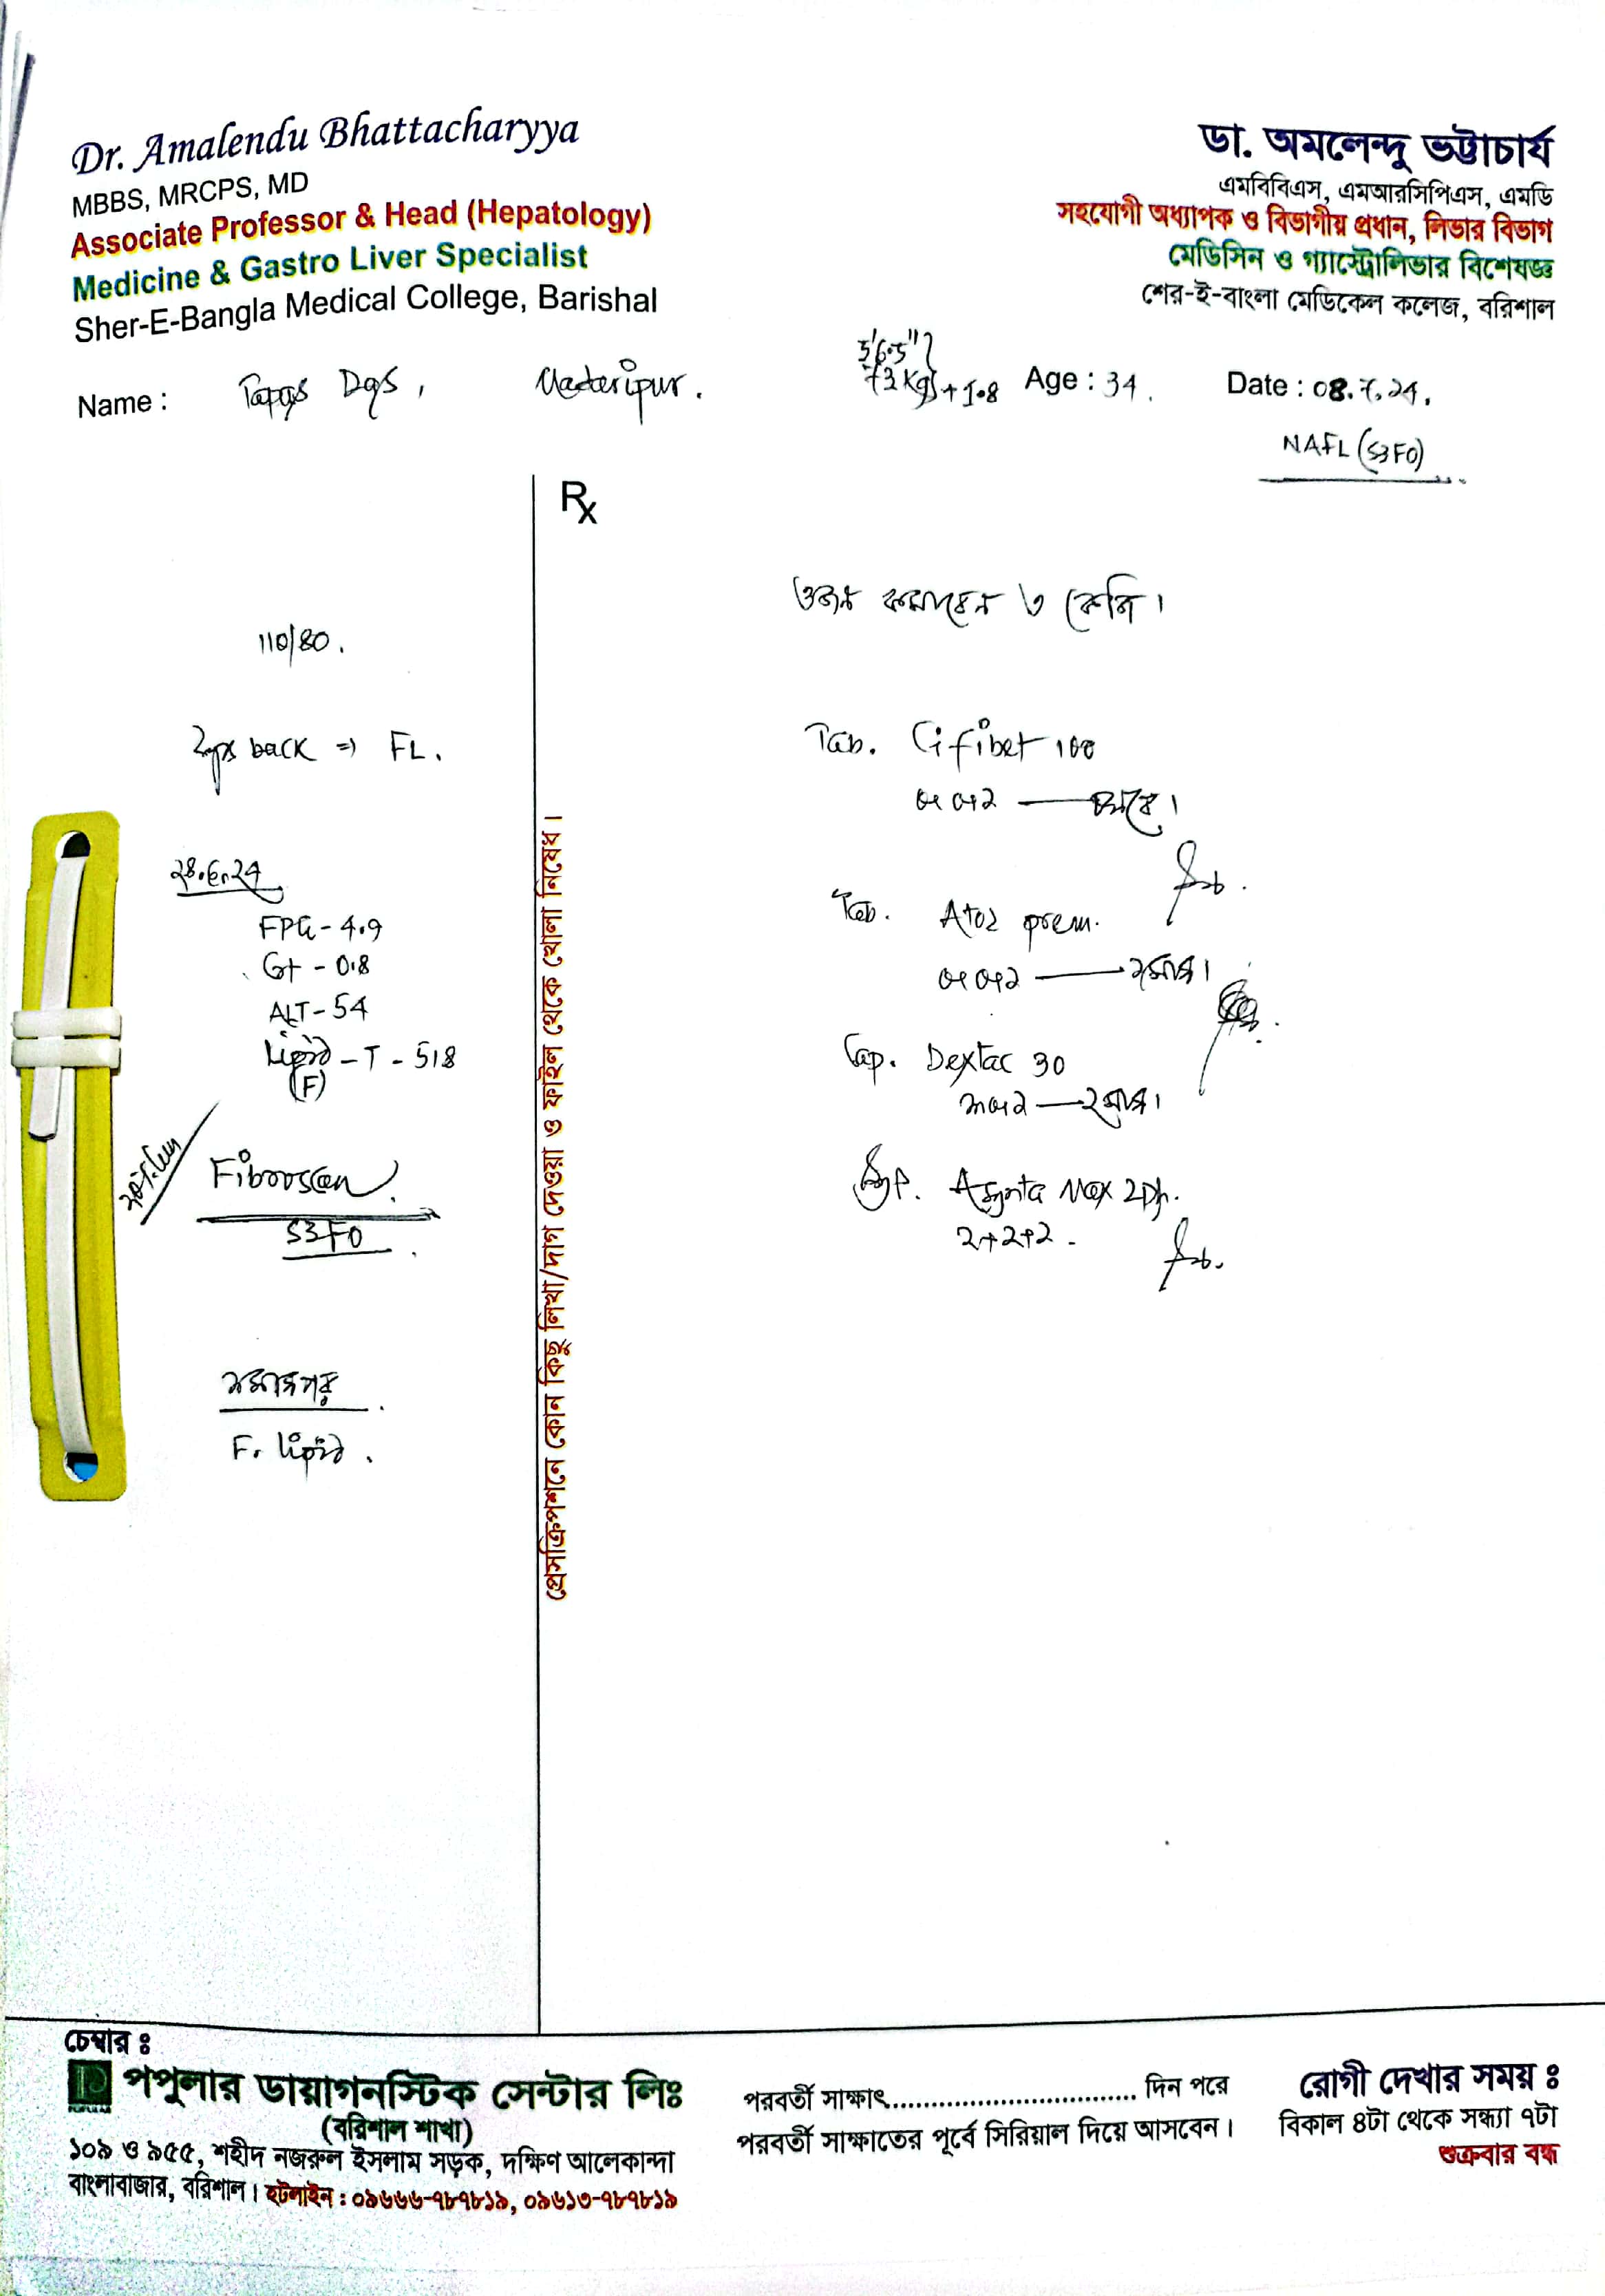 Dr. Amalendu Bhattacharyya
MBBS, MRCPS, MD
Associate Professor & Head (Hepatology)
Medicine & Gastro Liver Specialist
Sher-E-Bangla Medical College, Barishal
ডা. অমলেন্দু ভট্টাচার্য
এমবিবিএস, এমআরসিপিএস, এমডি
সহযোগী অধ্যাপক ও বিভাগীয় প্রধান, লিভার বিভাগ
মেডিসিন ও গ্যাস্ট্রোলিভার বিশেষজ্ঞ
শের-ই-বাংলা মেডিকেল কলেজ, বরিশাল
5'6.5"
Name : Tapas Das, Madaripur. 73 Kg + 1.8 Age : 34. Date : 08.7.24.
NAFL (S3F0)
Rx
110/80.
back ⇒ FL.
FPG - 4.9
- 0.8
ALT - 54
Lipid - T - 518
(F)
Fibroscan
S3F0
F. lipid.
ওজন কমাবেন ৩ কেজি।
Tab. 100
Tab. Atoz prem.
Cap. Dextac 30
Max
2+2+2
প্রেসক্রিপশনে কোন কিছু লিখা/দাগ দেওয়া ও ফাইল থেকে খোলা নিষেধ।
চেম্বার ঃ
পপুলার ডায়াগনস্টিক সেন্টার লিঃ
(বরিশাল শাখা)
১০৯ ও ৯৫৫, শহীদ নজরুল ইসলাম সড়ক, দক্ষিণ আলেকান্দা
বাংলাবাজার, বরিশাল। হটলাইন : ০৯৬৬৬-৭৮৭৮১৯, ০৯৬১৩-৭৮৭৮১৯
পরবর্তী সাক্ষাৎ................................ দিন পরে
পরবর্তী সাক্ষাতের পূর্বে সিরিয়াল দিয়ে আসবেন।
রোগী দেখার সময় ঃ
বিকাল ৪টা থেকে সন্ধ্যা ৭টা
শুক্রবার বন্ধ